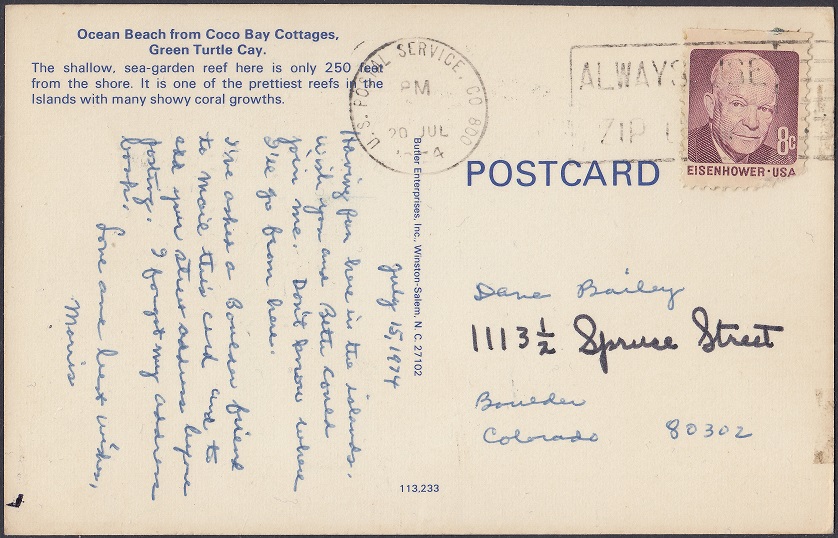 Ocean Beach from Coco Bay Cottages,
Green Turtle Cay.
The shallow, sea-garden reef here is only 250 feet
from the shore. It is one of the prettiest reefs in the
Islands with many showy coral growths.
U.S. POSTAL SERVICE, CO 800
PM
20 JUL
ALWAYS USE
ZIP
8c
EISENHOWER·USA
POSTCARD
Butler Enterprises, Inc., Winston-Salem, N. C. 27102
July 15, 1974
Having fun here in the islands.
Wish you and Beth could
join me. Don't know where
I'll go from here.
I've asked a Boulder friend
to mail this card and to
add your street address before
posting. I forgot my address
book.
Love and best wishes,
Morris
Dave Bailey
1113 1/2 Spruce Street
Boulder
Colorado 80302
113,233